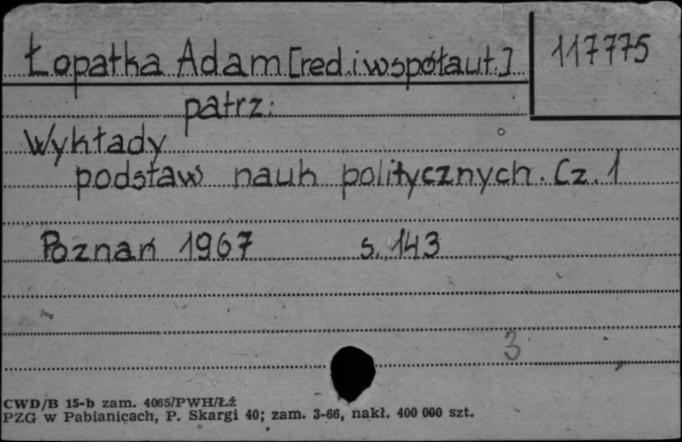 Łopatka Adam [red.i współaut.]
117775
patrz:
Wykłady
podstaw nauk politycznych. Cz. 1
Poznań 1967 s. 143
3
CWD/B 15-b zam. 4065/PWH/Łż
PZG w Pabianicach, P. Skargi 40; zam. 3-66, nakł. 400 000 szt.